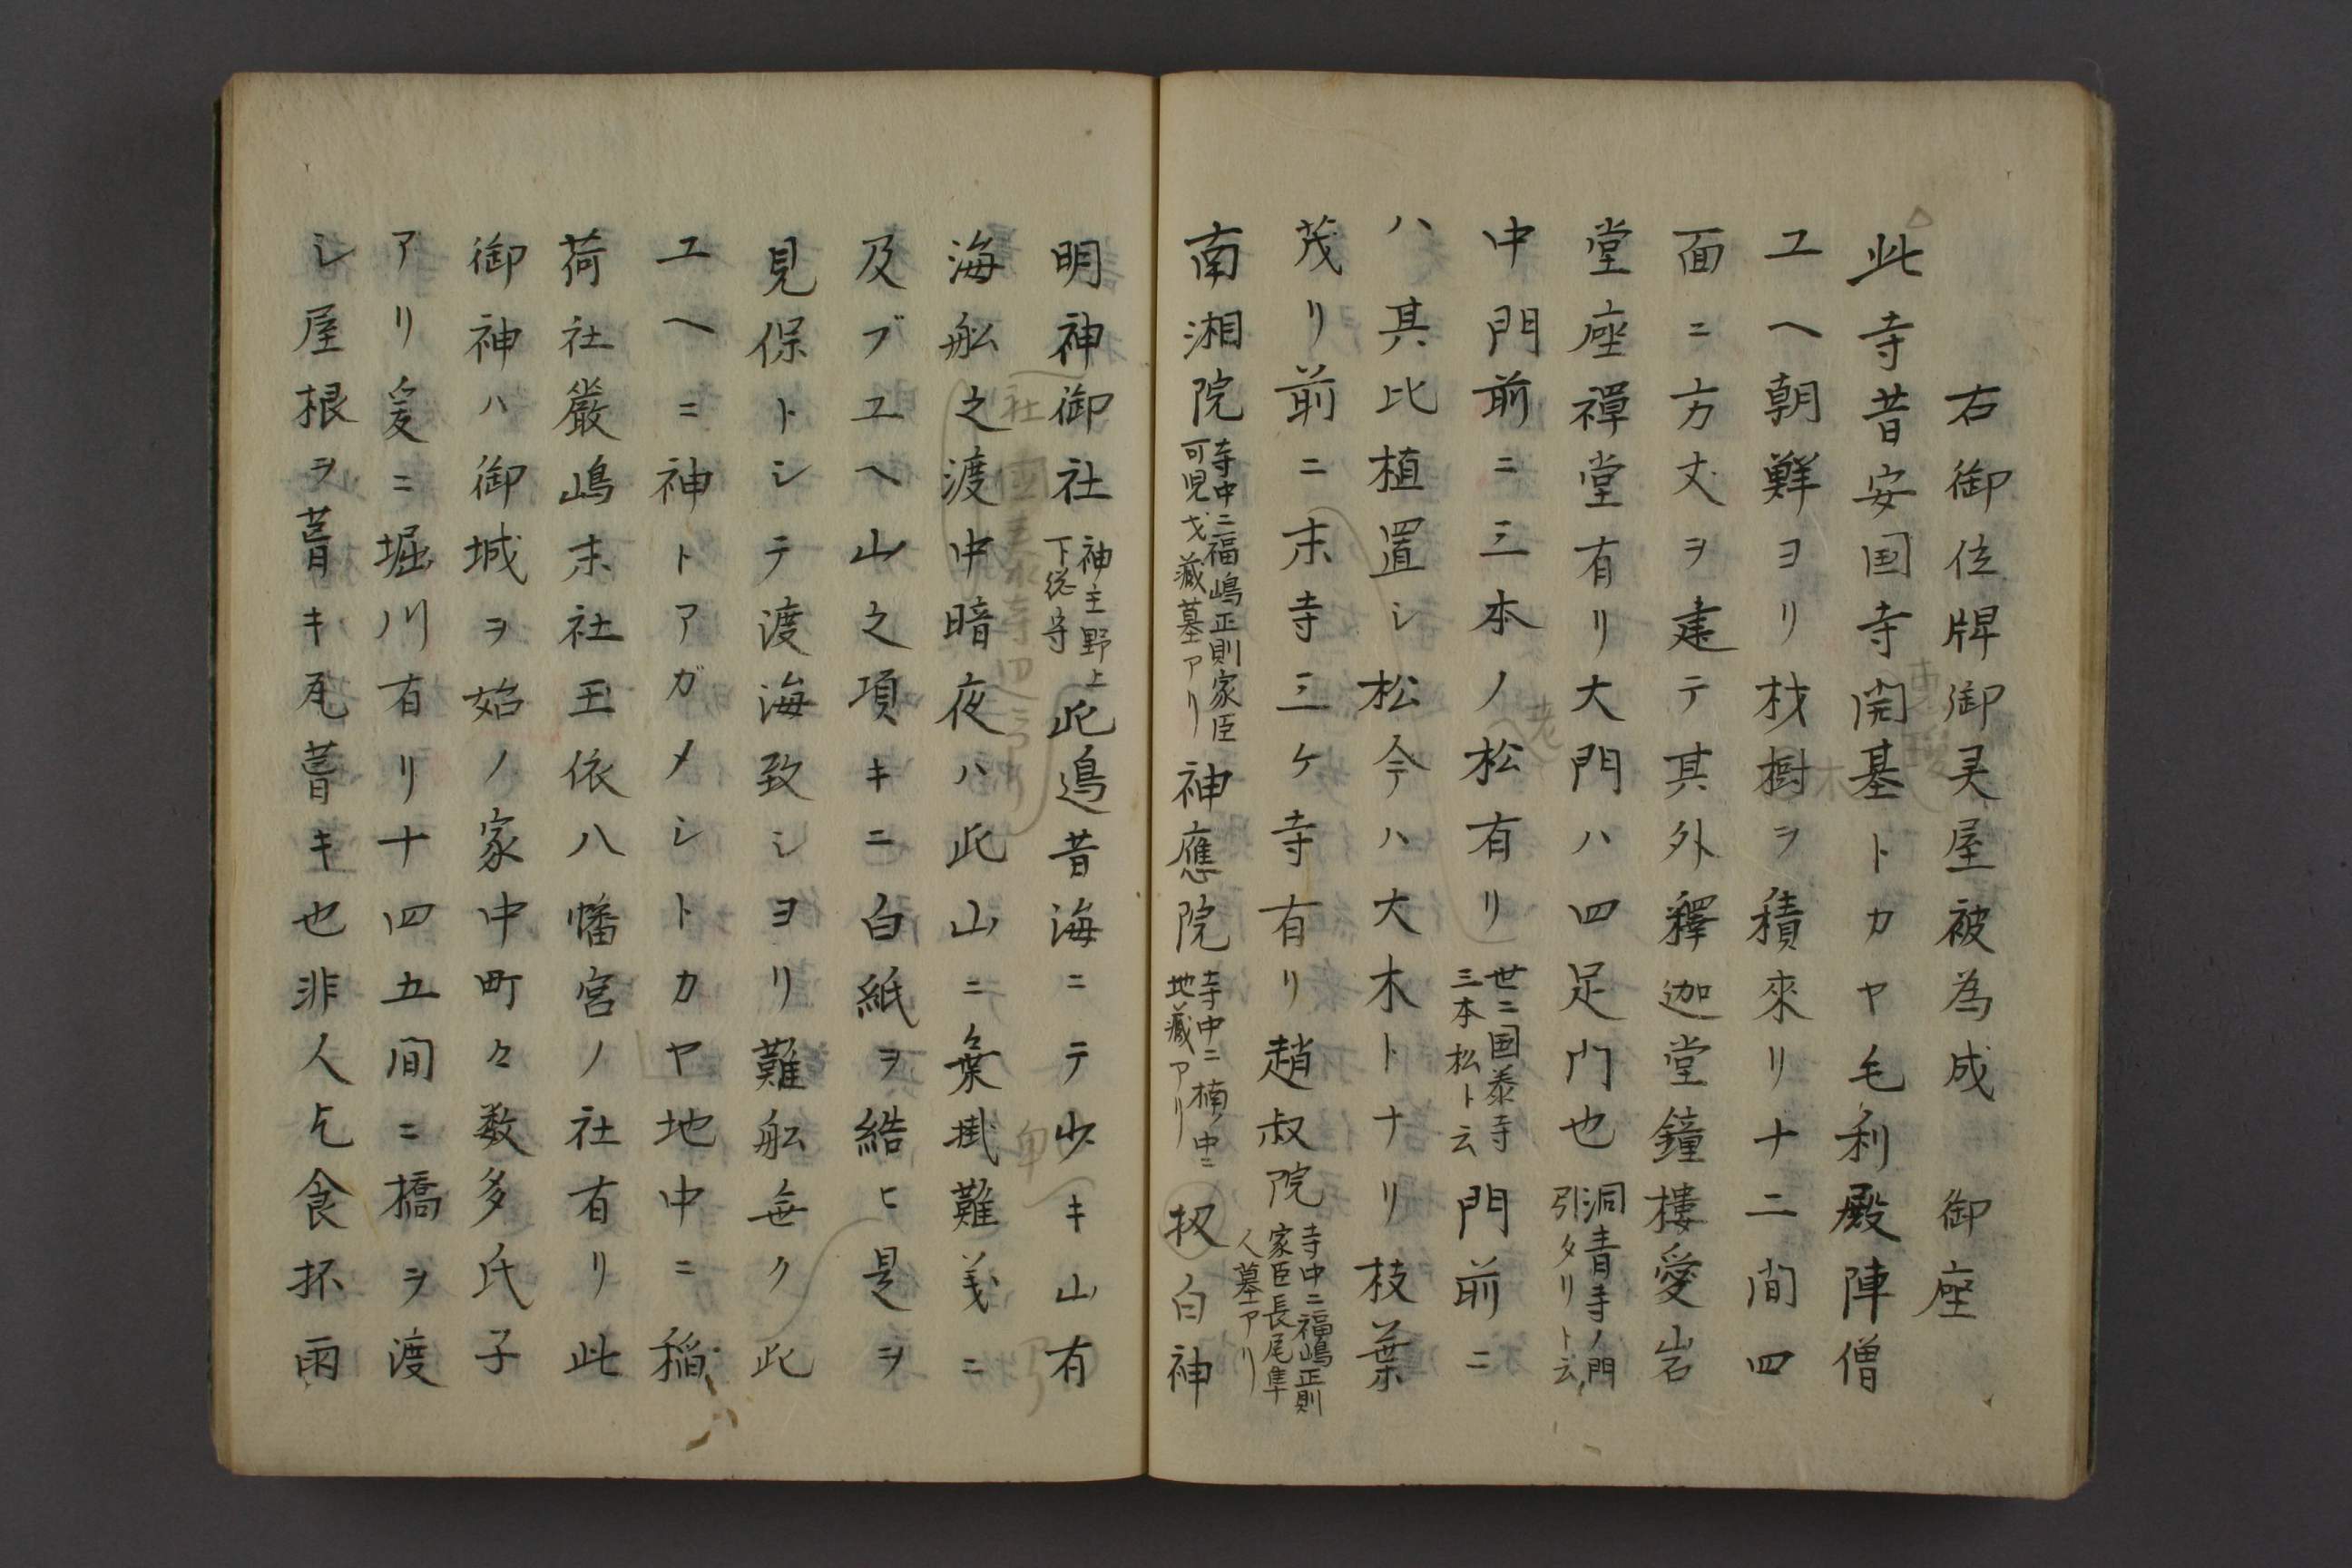 右御位牌御灵屋被為成御座
此寺昔安国寺開基トカヤ毛利殿陣僧
ユヘ朝鮮ヨリ材樹ヲ積來リ十二間四
面ニ方丈ヲ建テ其外釋迦堂鐘樓愛岩
堂座禪堂有リ大門ハ四足門也洞青寺ノ門引タリト云
中門前ニ三本ノ松有リ世ニ国泰寺三本松ト云門前ニ
ハ其比植置シ松今ハ大木トナリ枝葉
茂リ前ニ末寺三ケ寺有リ趙叔院寺中ニ福嶋正則家臣長尾隼人墓アリ
南湘院寺中ニ福嶋正則家臣可児才藏墓アリ神應院寺中ニ楠ノ中ニ地藏アリ扨白神
明神御社神主野上下総守此邉昔海ニテ少キ山有
海舩之渡中暗夜ハ此山ニ乗掛難義ニ
及ブユヘ山之項キニ白紙ヲ結ヒ是ヲ
見保トシテ渡海致シヨリ難舩無ク此
ユヘニ神トアガメシトカヤ地中ニ稲
荷社嚴嶋末社玉依八幡宮ノ社有リ此
御神ハ御城ヲ始ノ家中町々数多氏子
アリ爰ニ堀川有リ十四五間ニ橋ヲ渡
シ屋根ヲ葺キ瓦葺キ也非人乞食抔雨
老
木
社